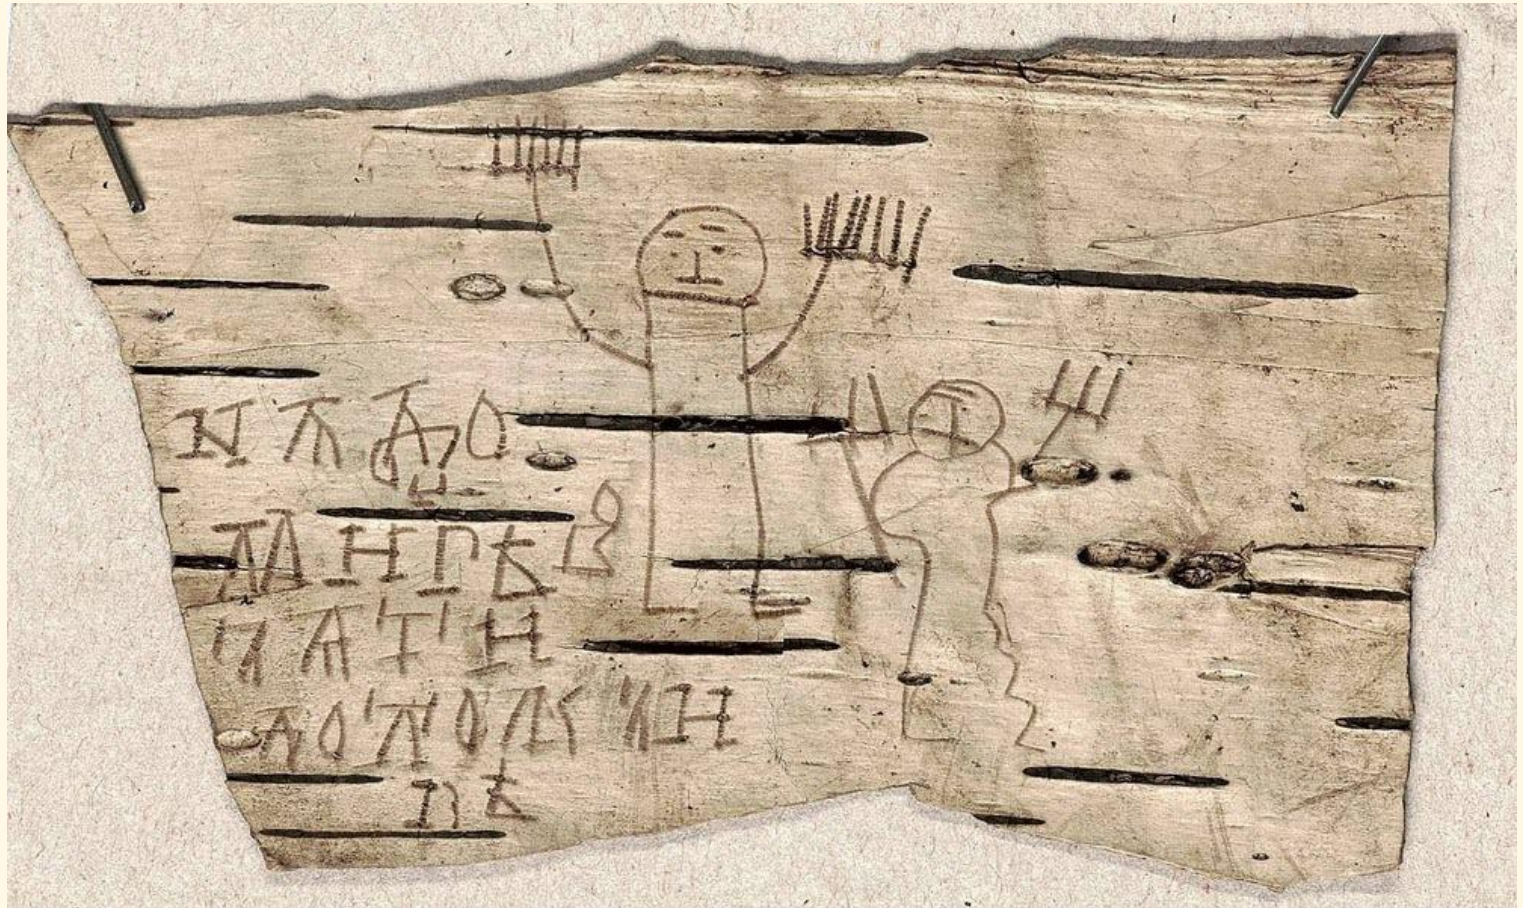 НАДО
МИТРѢВ
ЗѦТИ
ДОЛОЖЗИ
КѢ